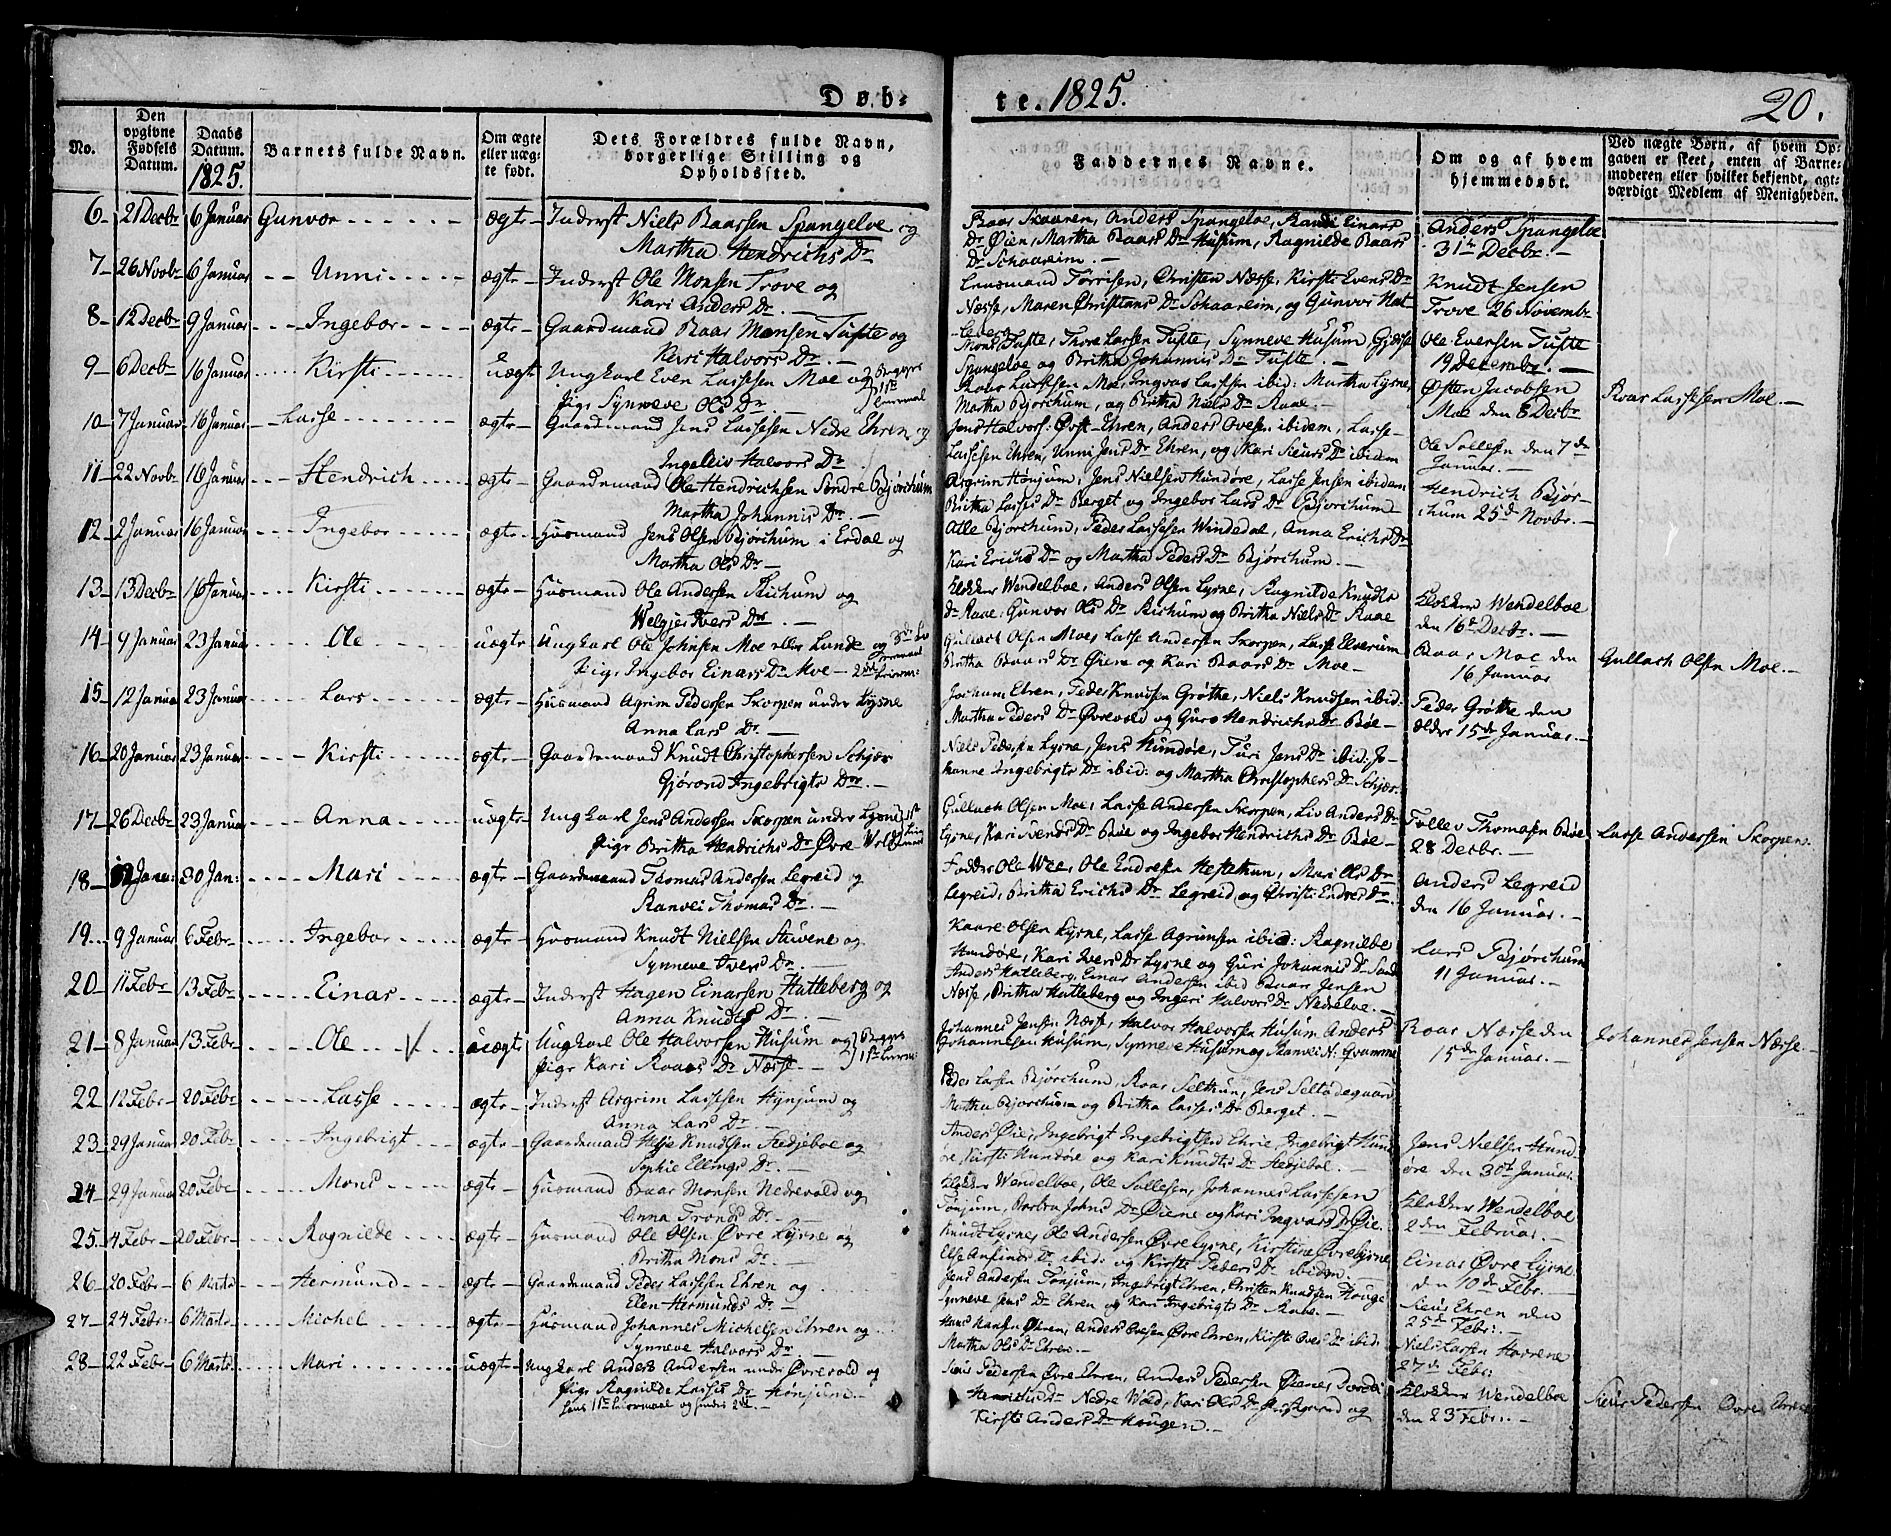 Døb-
te. 1825.
20.
No.
Den opgivne Fødsels Datum.
Daabs Datum. 1825.
Barnets fulde Navn.
Om ægte eller uægte født.
Dets Forældres fulde Navn, borgerlige Stilling og Opholdssted.
Faddernes Navne.
Om og af hvem hjemmedøbt.
Ved uægte Børn, af hvem Opgaven er skeet, enten af Barnemoderen eller hvilket bekjendt, agtværdigt Medlem af Menigheden.
6 21 Decbr 6 Januar Gunvor ægte Inderst Niels Baarsen Spangeloe og
Martha Hendrichs Dr
Baar Skaaren, Anders Spangeloe, Randi Einars
Dr Øien, Martha Baars Dr Husum, Ragnilde Baars
Dr Schaareim.
Anders Spangeloe
31te Decbr.
7 26 Novbr 6 Januar Unni ægte Inderst Ole Monsen Trove og
Kari Anders Dr.
Lensmand Torrisen, Christen Næsse, Kirsti Evens Dr
Næsse, Maren Christians Dr Schaareim, og Gunvor Hat-
leberg
Knudt Jensen
Trove 26 Novembr
8 12 Decbr 9 Januar Ingebor ægte Gaardmand Baar Monsen Tufte og
Kari Halvors Dr.
Mons Tufte, Thore Larsen Tufte, Synneve Husum, Gjertse
Spangeloe og Britha Johannis Dr Tufte.
Ole Eversen Tufte
19 Decembr.
9 6 Decbr 16 Januar Kirsti uægte Ungkarl Even Lassesen Moe og
Pige Synneve Ols Dr
Begges 1ste Leiermaal
Roar Lassesen Moe, Ingvar Lassesen ibid: Martha Lysne,
Martha Bjorchum, og Britha Niels Dr Raae.
Østen Jacobsen
Moe den 8 Decbr
Roar Lassesen Moe.
10 7 Januar 16 Januar Lasse ægte Gaardmand Jens Lassesen Nedre Ehren og
Ingeleiv Halvors Dr
Jens Halvors. Øvst-Ehren, Anders Ovesen ibidem, Lasse
Lassesen Ehren, Unni Jens Dr Ehren, og Kari Sieurs Dr ibidem
Ole Sollesen den 7de
Januar.
11 22 Novbr 16 Januar Hendrich ægte Gaardemand Ole Hendrichsen Søndre Bjørchum
Martha Johannis Dr.
Argrim Hønjum, Jens Nielsen Hundøre, Lasse Jensen ibidem
Britha Lasses Dr Berget og Ingebor Lars Dr Bjorchum
Hendrich Bjør-
chum 25de Novbr.
12 2 Januar 16 Januar Ingebor ægte Huusmand Jens Olsen Bjorchum i Erdal og
Martha Ols Dr.
Atle Bjorchum, Peder Lassesen Windedal, Anna Erichs Dr
Kari Erichs Dr og Martha Peders Dr Bjørchum.
13 13 Decbr 16 Januar Kirsti ægte Huusmand Ole Andersen Richum og
Welgier Ivers Dr
Klokker Wendelboe, Anders Olsen Lysne, Ragnilde Knudts
Dr Raae, Gunvor Ols Dr Richum og Britha Niels Dr Raae
Klokker Wendelboe
den 16de Decbr.
14 9 Januar 23 Januar Ole uægte Ungkarl Ole Johnsen Moe eller Lunde og
Pige Ingebor Einars Dr Moe
Gullach Olsen Moe, Lasse Andersen Skorpen, Lasse Elverum
Britha Baars Dr Øiene og Kari Baars Dr Moe.
Baar Moe den
16 Januar
Gullach Olsen Moe.
15 12 Januar 23 Januar Lars ægte Huusmand Agrim Pedersen Skorpen under Lysne
Anna Lars Dr.
Jochum Ehren, Peder Knudsen Grøthe, Niels Knudsen ibid.
Martha Peders Dr Øvrevold og Guro Hendrichs Dr Bøe
Peder Grøthe den
ældre 15de Januar.
16 20 Januar 23 Januar Kirsti ægte Gaardemand Knudt Christophersen Schjær
Gjørond Ingebrigts Dr.
Niels Pedersen Lysne, Jens Hundøre, Turi Jens Dr ibid: Jo-
hanne Ingebrigts Dr ibid: og Martha Christophers Dr Schjær.
17 26 Decbr 23 Januar Anna uægte Ungkarl Jens Andersen Skorpen under Lysne
Pige Britha Hendrichs Dr Øvre Wold
Gullach Olsen Moe, Lasse Andersen Skorpen, Liv Anders Dr
Lysne, Kari Svends Dr Bøe og Ingebor Hendrichs Dr Bøe
Tollev Thomasen Bøe
28 Decbr.
Lasse Andersen Skorpen.
18 12 Janu: 30 Jan: Mari ægte Gaardemand Thomas Andersen Legreid og
Ranvei Thomas Dr.
Fodder Ole Wee, Ole Endresen Hestethun, Mari Ols Dr
Legreid, Britha Erichs Dr Legreid og Christi Endres Dr
Anders Legreid
den 16 Januar.
19 9 Januar 6 Febr Ingebor ægte Huusmand Knudt Nielsen Stuvene og
Synneve Ivers Dr.
Kaare Olsen Lysne, Lasse Agrimsen ibid: Ragnilde
Hundøre, Kari Ivers Dr Lysne og Guri Johannis Dr Sand
Lars Bjørchum
11 Januar.
20 11 Febr 13 Febr Einar ægte Inderst Hagen Einarsen Hatleberg og
Anna Knudts Dr.
Anders Hatleberg, Einar Andersen ibid Baar Jensen
Næsse, Britha Hatleberg og Ingeri Halvors Dr Nedreloe.
21 8 Januar 13 Febr Ole uægte Ungkarl Ole Halvorsen Husum og
Pige Kari Roars Dr Næsse.
Begges 1ste Leierm:
Johannes Jensen Næsse, Halvor Halvorsen Husum Anders
Johannessen Husum, Synneve Husum og Ranvei N. Qvamme
Roar Næsse den
15de Januar.
Johannes Jensen Næsse.
22 12 Febr 20 Febr Lasse ægte Inderst Argrim Lassesen Hynjum og
Anna Lars Dr.
Peder Larsen Bjørchum, Roar Selthun, Jens Seltødegaard
Martha Bjorchum og Britha Lasses Dr Berget.
23 29 Januar 20 Feb Ingebrigt ægte Gaardemand Helje Knudsen Stedjeboe og
Sophie Ellings Dr.
Anders Øie, Ingebrigt Ingebrigtsen Ehrie, Ingebrigt Hund
øre, Kirsti Hundøre og Kari Knudts Dr Stedjeboe.
Jens Nielsen Hund
øre den 30te Januar
24 29 Januar 20 Febr Mons ægte Huusmand Baar Monsen Nedrevold og
Anna Tronds Dr.
Klokker Wendelboe, Ole Sollesen, Johannes Lassesen
Tønjum, Barbra Johns Dr Øiene og Kari Ingvars Dr Øie.
Klokker Wendelboe
2den Februar.
25 4 Febr 20 Febr Ragnilde ægte Huusmand Ole Olsen Øvre Lysne og
Britha Mons Dr.
Knudt Lysne, Ole Andersen Øvre Lysne, Kirstine Øvre Lysne
Else Anfinds Dr ibid: og Kirsti Peders Dr ibidem.
Einar Øvre Lysne
den 10de Febr.
26 20 Febr 6 Marts Hermund ægte Gaardemand Peder Lassesen Ehren og
Elen Hermunds Dr
Jens Andersen Tønjum, Ingebrigt Ehren, Christen Knudsen Houge
Synneve Jens Dr Ehren og Kari Ingebrigts Dr Raae.
Sieur Ehren den
25de Febr.
27 24 Febr 6 Marts Michel ægte Huusmand Johannes Michelsen Ehren og
Synneve Halvors Dr.
Hans Hansen Ehren, Anders Ovesen Øvre Ehren, Kirsti Oves Dr ibid:
Martha Ols Dr Ehren.
Niels Larsen Havrene
27de Febr.
28 22 Febr 6 Marts Mari uægte Ungkarl Anders Andersen under Øvrevold og
Pige Ragnilde Lasses Dr Hønjum
hans 1ste Leiermaal og hendes 2det.
Sieur Pedersen Øvre Ehren, Anders Pedersen Øiene, Dordei
Dr Nedre Wold, Kari Ols Dr og
Kirsti Anders Dr Hougen.
Klokker Wendelboe
den 23 Febr.
Sieur Pedersen Øvre Ehren